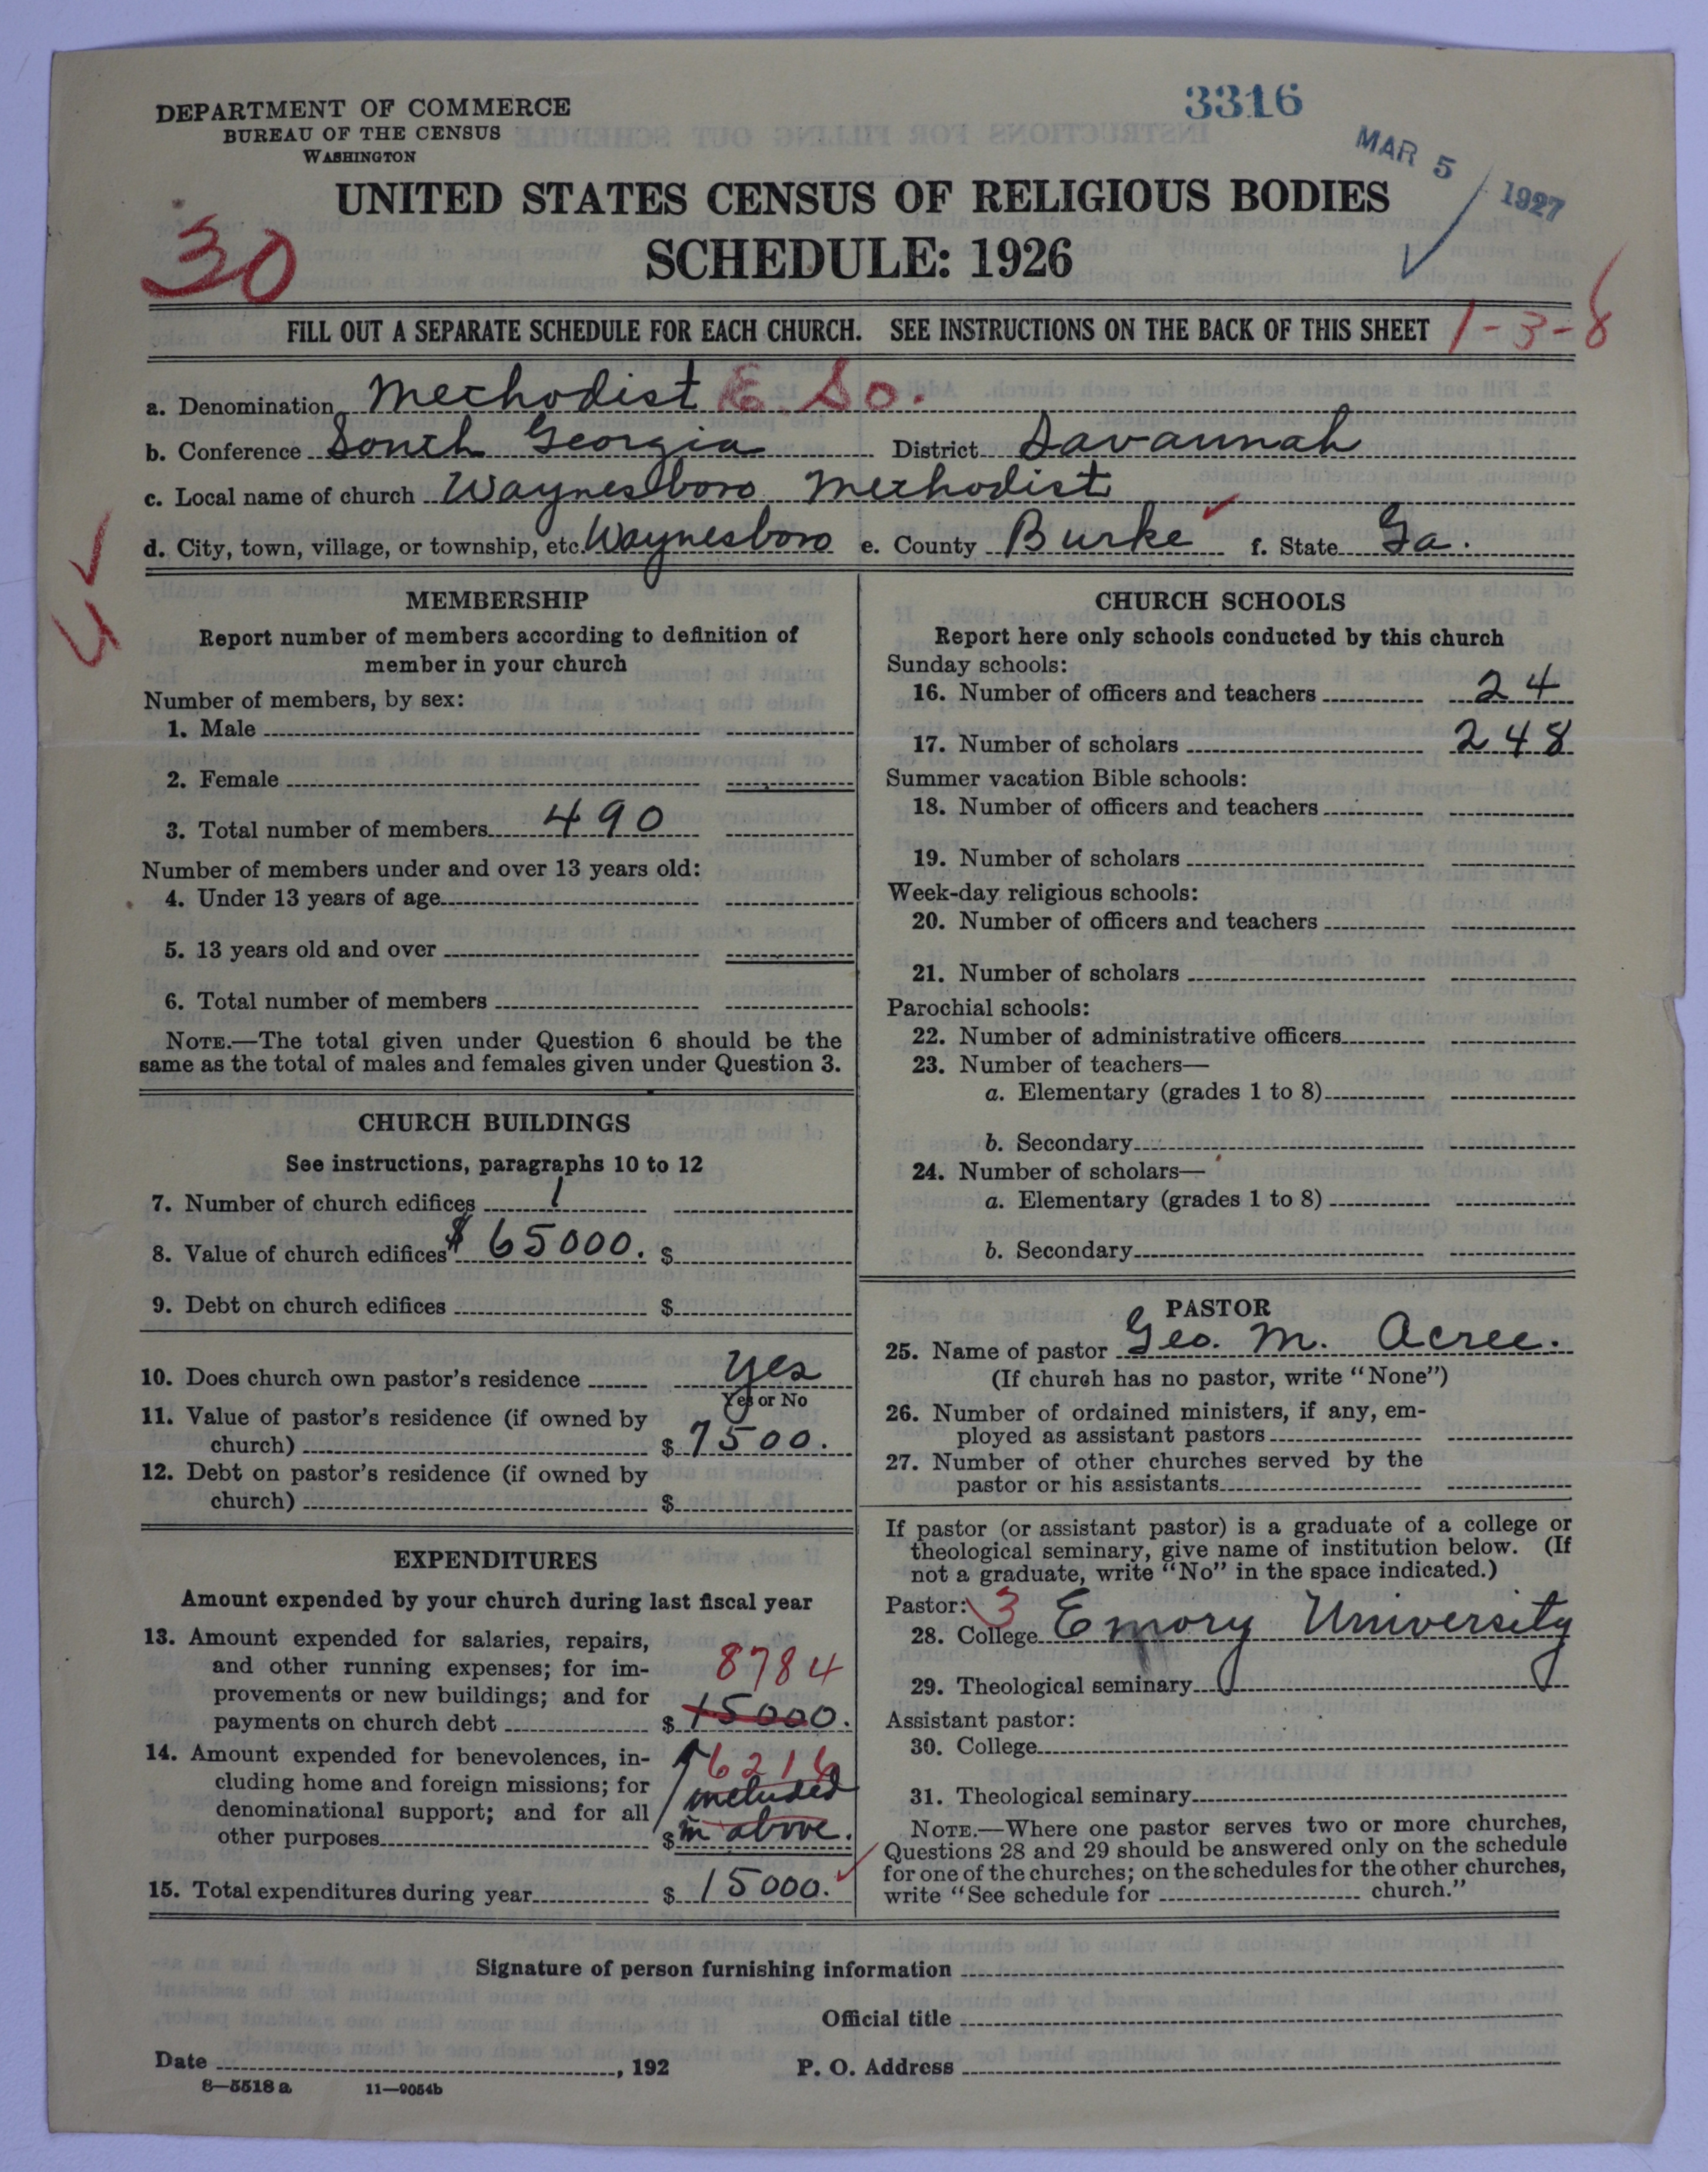 DEPARTMENT OF COMMERCE
BUREAU OF THE CENSUS
WASHINGTON
3316
MAR 5 1927
UNITED STATES CENSUS OF RELIGIOUS BODIES
SCHEDULE: 1926
30
FILL OUT A SEPARATE SCHEDULE FOR EACH CHURCH. SEE INSTRUCTIONS ON THE BACK OF THIS SHEET
1-3-8
a. Denomination Methodist E. So.
b. Conference South Georgia District Savannah
c. Local name of church Waynesboro Methodist
d. City, town, village, or township, etc. Waynesboro e. County Burke f. State Ga.
MEMBERSHIP
Report number of members according to definition of
member in your church
Number of members, by sex:
1. Male
2. Female
3. Total number of members 490
Number of members under and over 13 years old:
4. Under 13 years of age
5. 13 years old and over
6. Total number of members
NOTE.—The total given under Question 6 should be the
same as the total of males and females given under Question 3.
CHURCH BUILDINGS
See instructions, paragraphs 10 to 12
7. Number of church edifices 1
8. Value of church edifices $ 65000. $
9. Debt on church edifices $
10. Does church own pastor's residence yes
Yes or No
11. Value of pastor's residence (if owned by
church) $ 7500.
12. Debt on pastor's residence (if owned by
church) $
EXPENDITURES
Amount expended by your church during last fiscal year
13. Amount expended for salaries, repairs,
and other running expenses; for im-
provements or new buildings; and for
payments on church debt $ 15000.
8784
14. Amount expended for benevolences, in-
cluding home and foreign missions; for
denominational support; and for all
other purposes $ included
in above.
6216
15. Total expenditures during year $ 15000.
CHURCH SCHOOLS
Report here only schools conducted by this church
Sunday schools:
16. Number of officers and teachers 24
17. Number of scholars 248
Summer vacation Bible schools:
18. Number of officers and teachers
19. Number of scholars
Week-day religious schools:
20. Number of officers and teachers
21. Number of scholars
Parochial schools:
22. Number of administrative officers
23. Number of teachers—
a. Elementary (grades 1 to 8)
b. Secondary
24. Number of scholars—
a. Elementary (grades 1 to 8)
b. Secondary
PASTOR
25. Name of pastor Geo. M. Acree.
(If church has no pastor, write "None")
26. Number of ordained ministers, if any, em-
ployed as assistant pastors
27. Number of other churches served by the
pastor or his assistants
If pastor (or assistant pastor) is a graduate of a college or
theological seminary, give name of institution below. (If
not a graduate, write "No" in the space indicated.)
Pastor: 3
28. College Emory University
29. Theological seminary
Assistant pastor:
30. College
31. Theological seminary
NOTE.—Where one pastor serves two or more churches,
Questions 28 and 29 should be answered only on the schedule
for one of the churches; on the schedules for the other churches,
write "See schedule for church."
Signature of person furnishing information
Official title
Date , 192 P. O. Address
8—5518 a 11—9054b